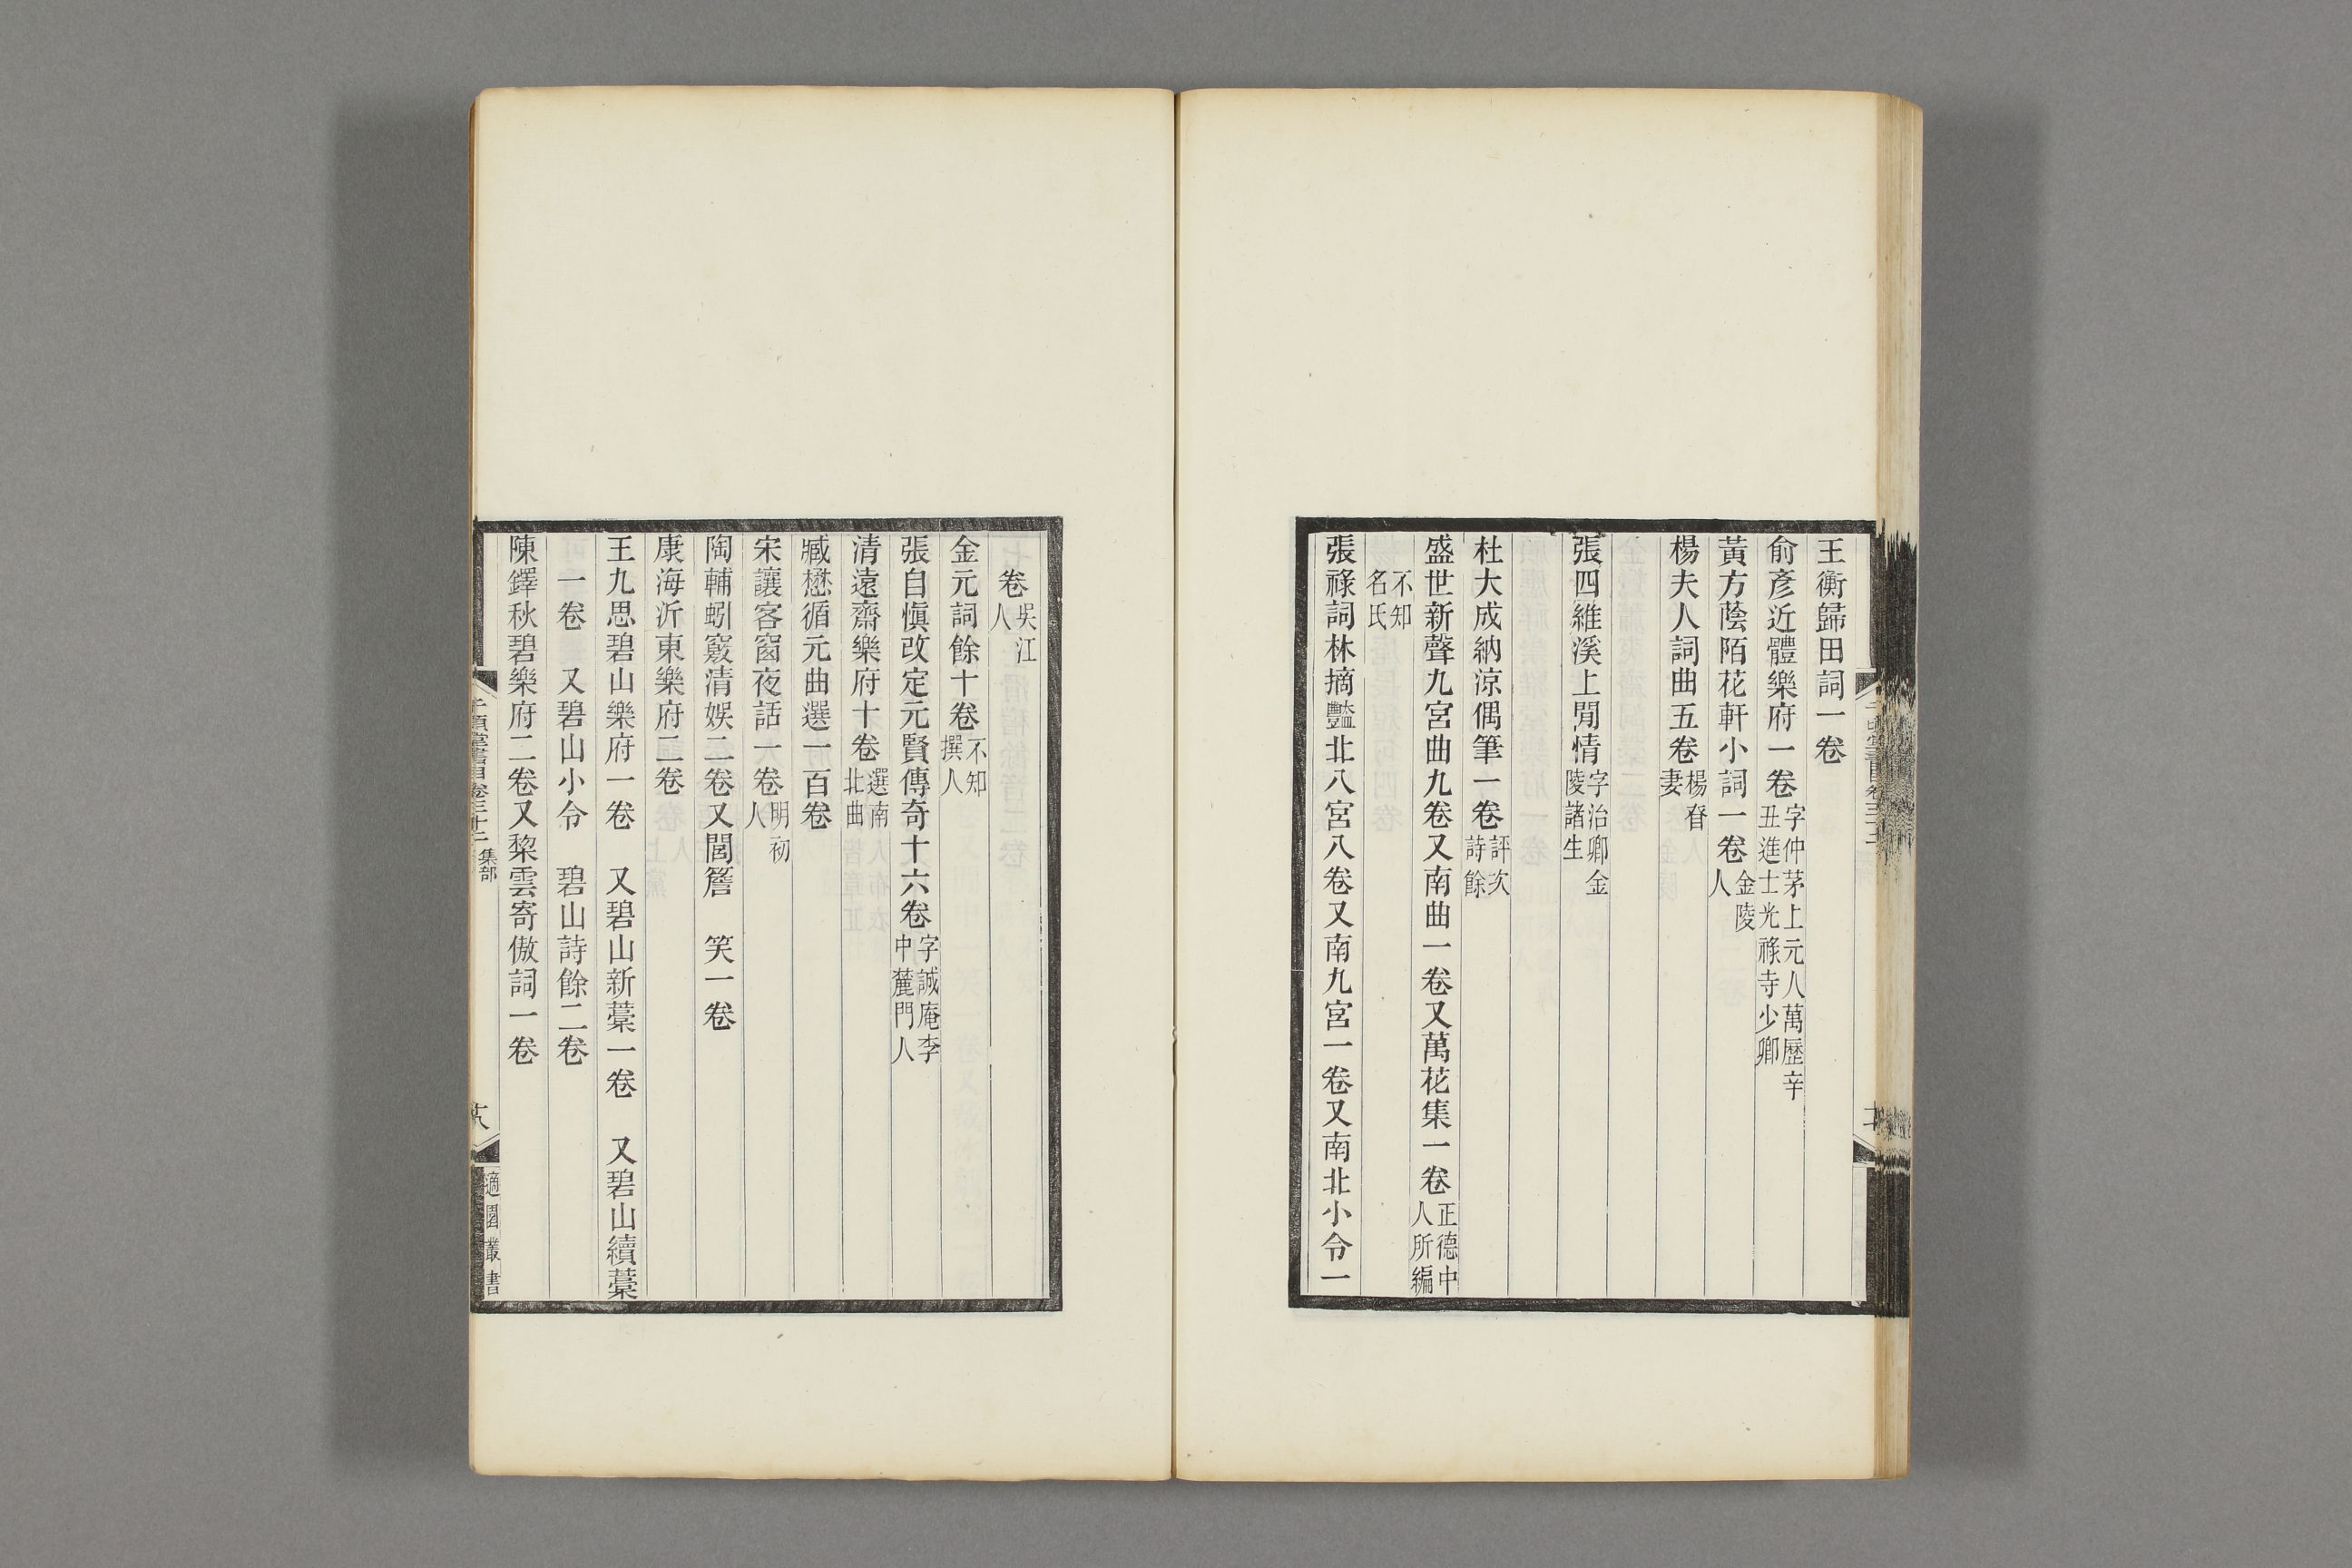 王衡歸田詞一卷
俞彥近體樂府一卷字仲茅上元人萬歷辛丑進士光祿寺少卿
黃方蔭陌花軒小詞一卷金陵人
楊夫人詞曲五卷楊脊妻
張四維溪上閒情字治卿金陵諸生
杜大成納涼偶筆一卷評次詩餘
盛世新聲九宮曲九卷又南曲一卷又萬花集一卷正德中人所編
不知名氏
張祿詞林摘豔北八宮八卷又南九宮一卷又南北小令一
卷吳江人
金元詞餘十卷不知撰人
張自慎改定元賢傳奇十六卷字誠庵李中麓門人
清遠齋樂府十卷選南北曲
臧懋循元曲選一百卷
宋讓客窗夜話一卷明初人
陶輔蚓竅清娛二卷又閭簷 笑一卷
康海沂東樂府二卷
王九思碧山樂府一卷 又碧山新藁一卷 又碧山續藁
一卷 又碧山小令 碧山詩餘二卷
陳鐸秋碧樂府二卷又棃雲寄傲詞一卷
千頃堂書目卷三十二 集部
適園叢書